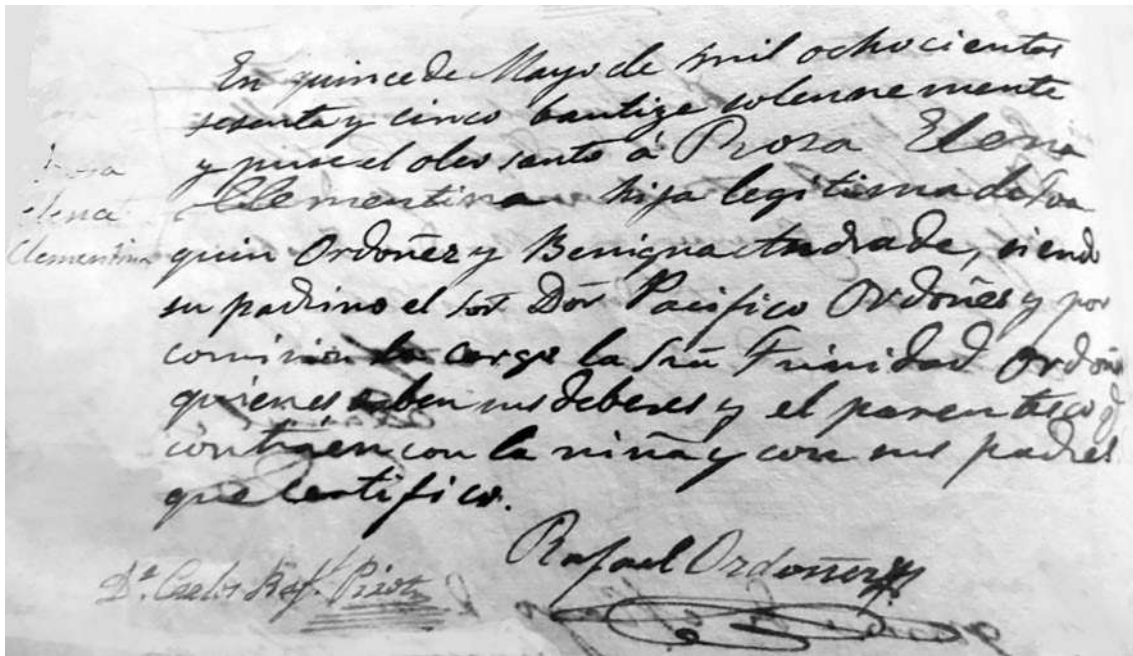 En quince de Mayo de mil ochocientos
sesenta y cinco bautize solennemente
y puse el oleo santo á Rosa Elena
Clementina hija legitima de Joa
quin Ordoñez y Benigna Andrade, siendo
su padrino el Sor. Don Pacifico Ordoñes y por
comision la cargo la Sra Trinidad Ordoñ
quienes saben sus deberes y el parentesco q
contraen con la niña y con sus padres
que certifico.
Rafael Ordoñez
Rosa
elena
Clementina
Dr. Carlos Raf.